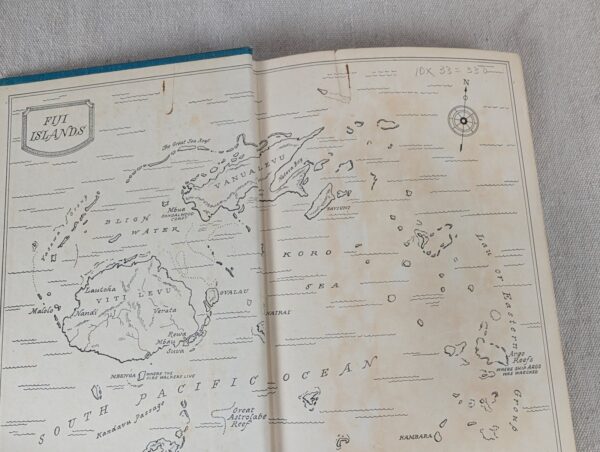 FIJI
ISLANDS
10X 33 = 330
N
The Great Sea Reef
VANUA LEVU
Mbua
SANDALWOOD
COAST
TAVIUNI
BLIGH
WATER
KORO
SEA
Lau or Eastern Group
Lautoka
VITI LEVU
Malolo
Nandi
Verata
OVALAU
NAIRAI
Rewa
Mbau
Suva
MBENGA
WHERE THE
FIRE WALKERS LIVE
SOUTH PACIFIC OCEAN
Kandavu Passage
Great
Astrolabe
Reef
Argo
Reefs
WHERE SHIP ARGO
WAS WRECKED
KAMBARA